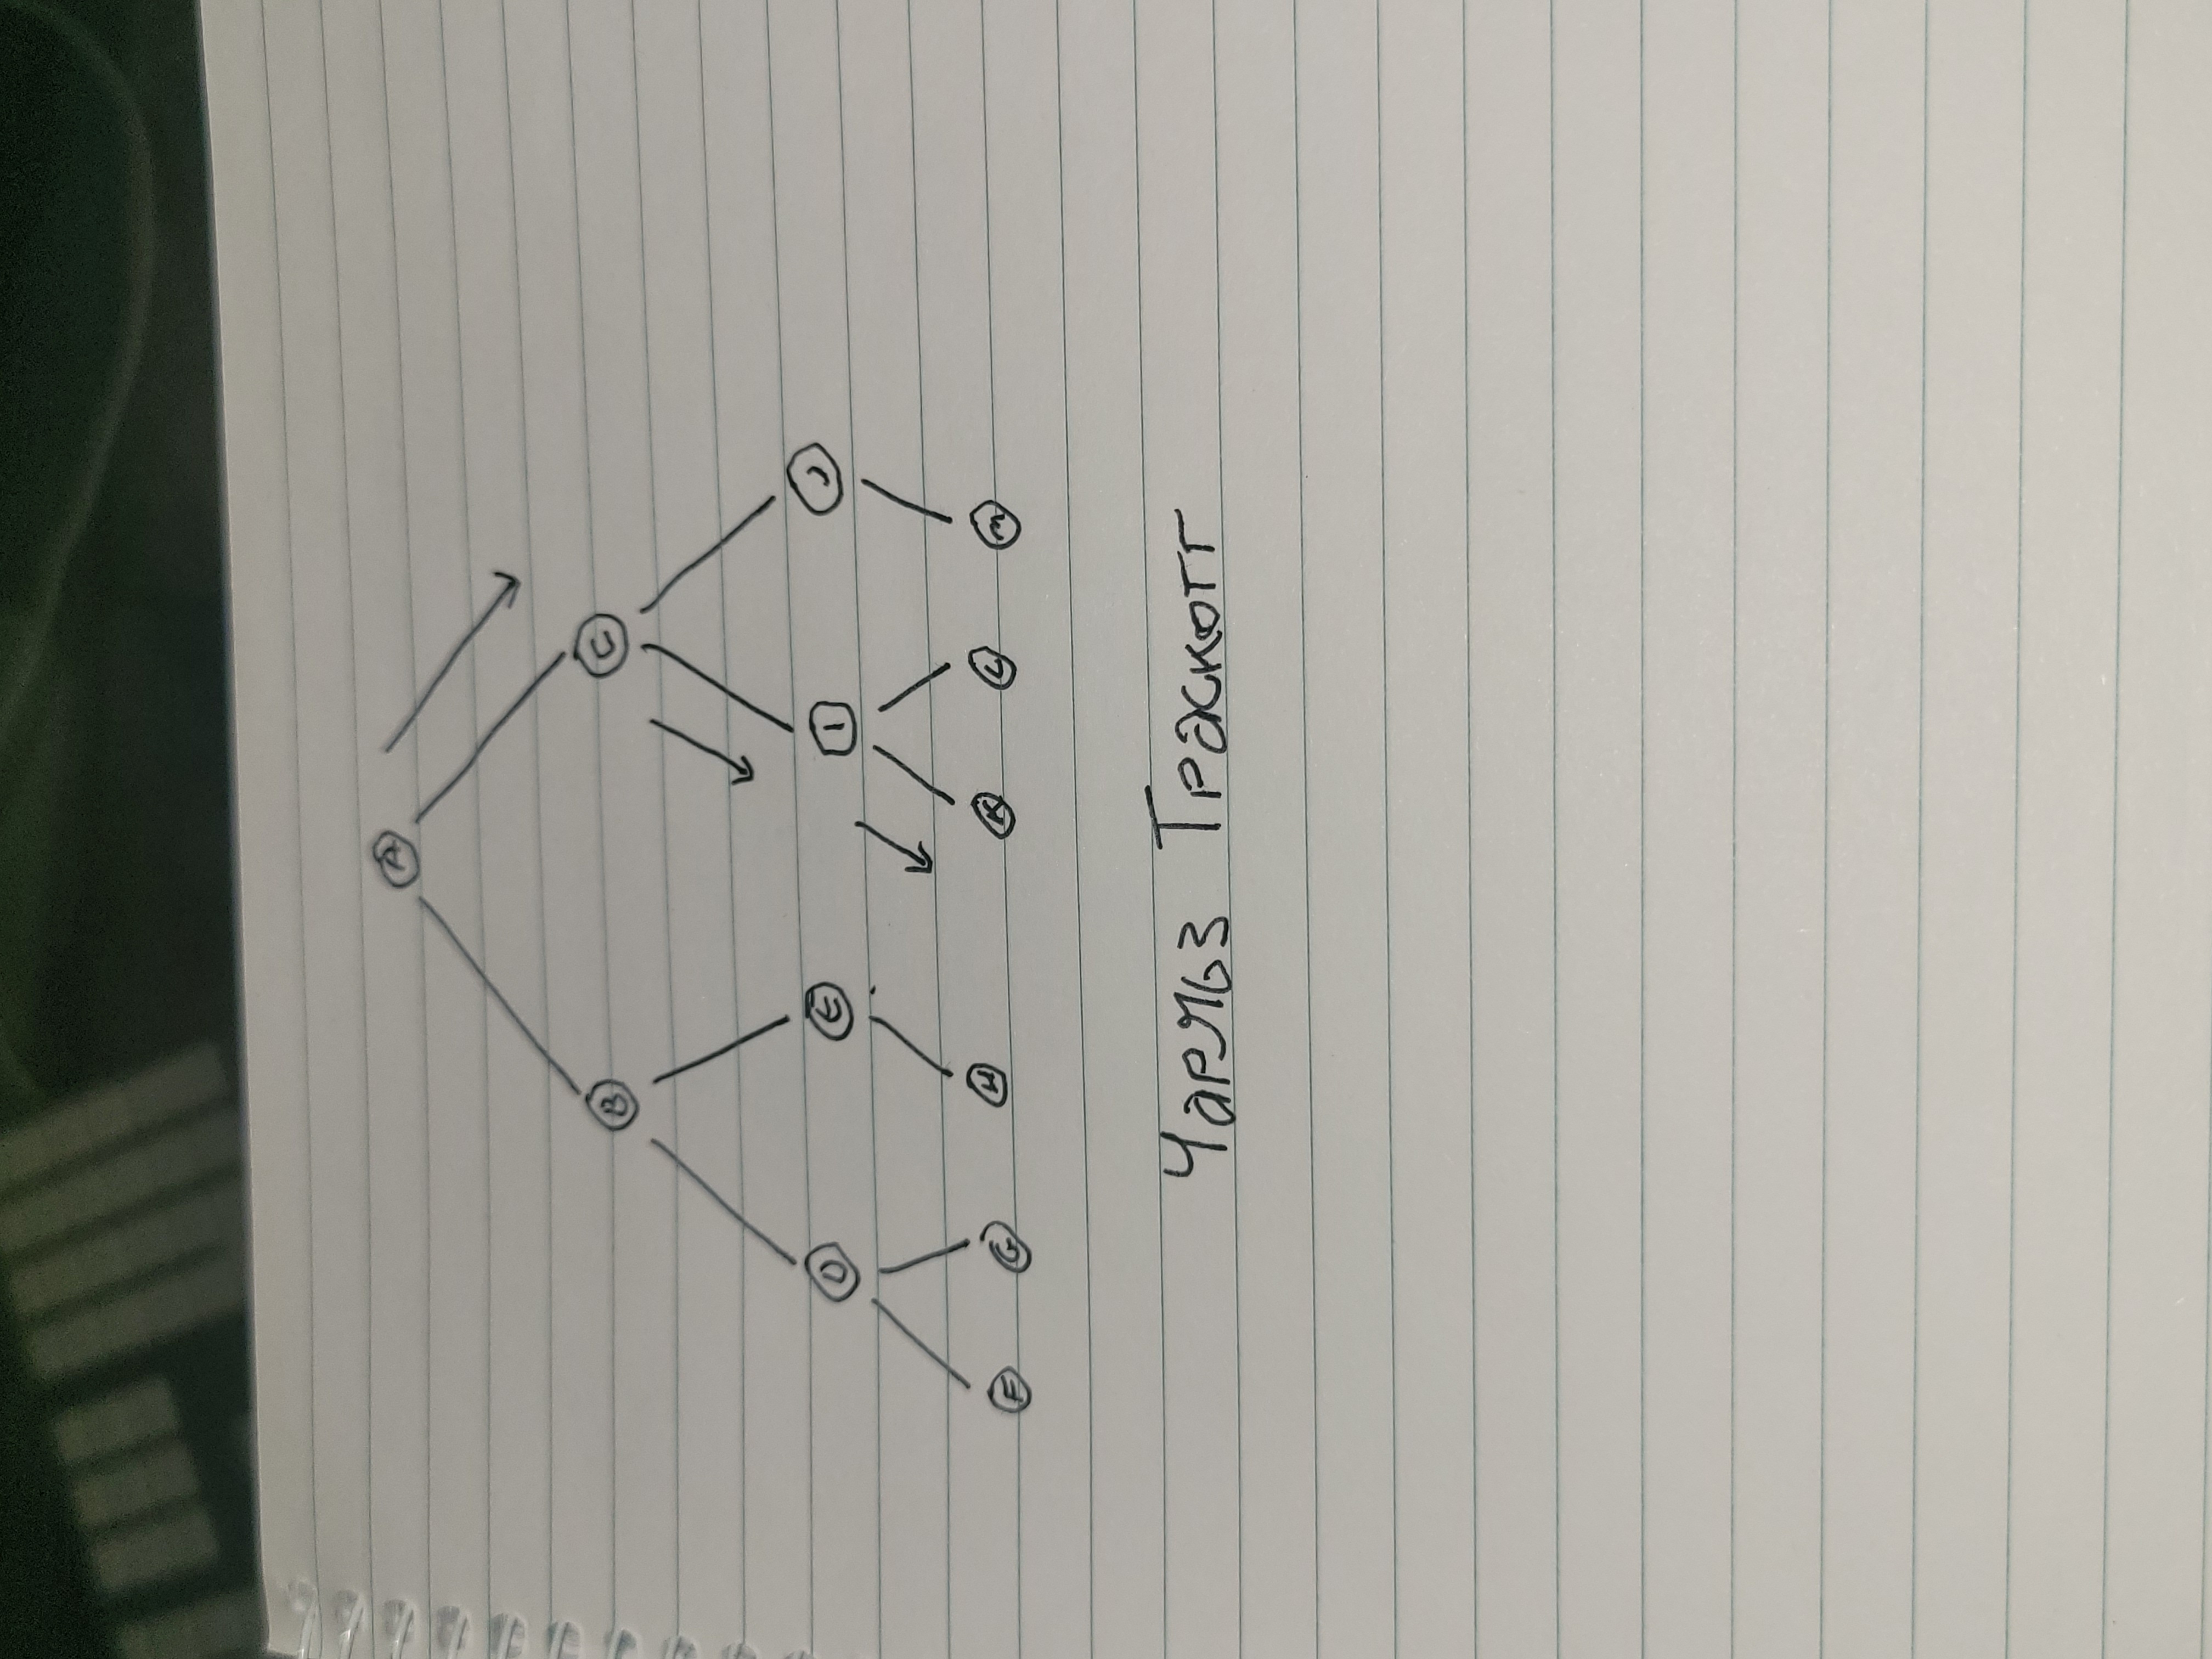 A
B C
D E I J
F G H K L M
Чарльз Траскотт